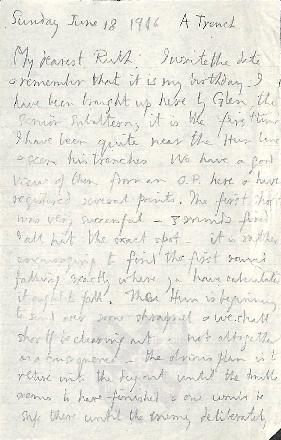 Sunday June 18 1916 A Trench
My dearest Ruth: I write the date
& remember that it is my birthday. I
have been brought up here by Glen, the
senior subaltern; it is the first time
I have been quite near the Hun line
& seen his trenches. We have a good
view of them from an O.P. here & have
registered several points. The first shoot
was very successful – 3 rounds fired
& all hit the exact spot – it is rather
encouraging to find the first round
falling exactly where you have calculated
it ought to fall. The Hun is beginning
to send over some shrapnel & we shall
shortly be clearing out not altogether
the obvious plan is to
retire into the dug out until the trouble
seems to have finished & one would be
safe there until the enemy deliberately